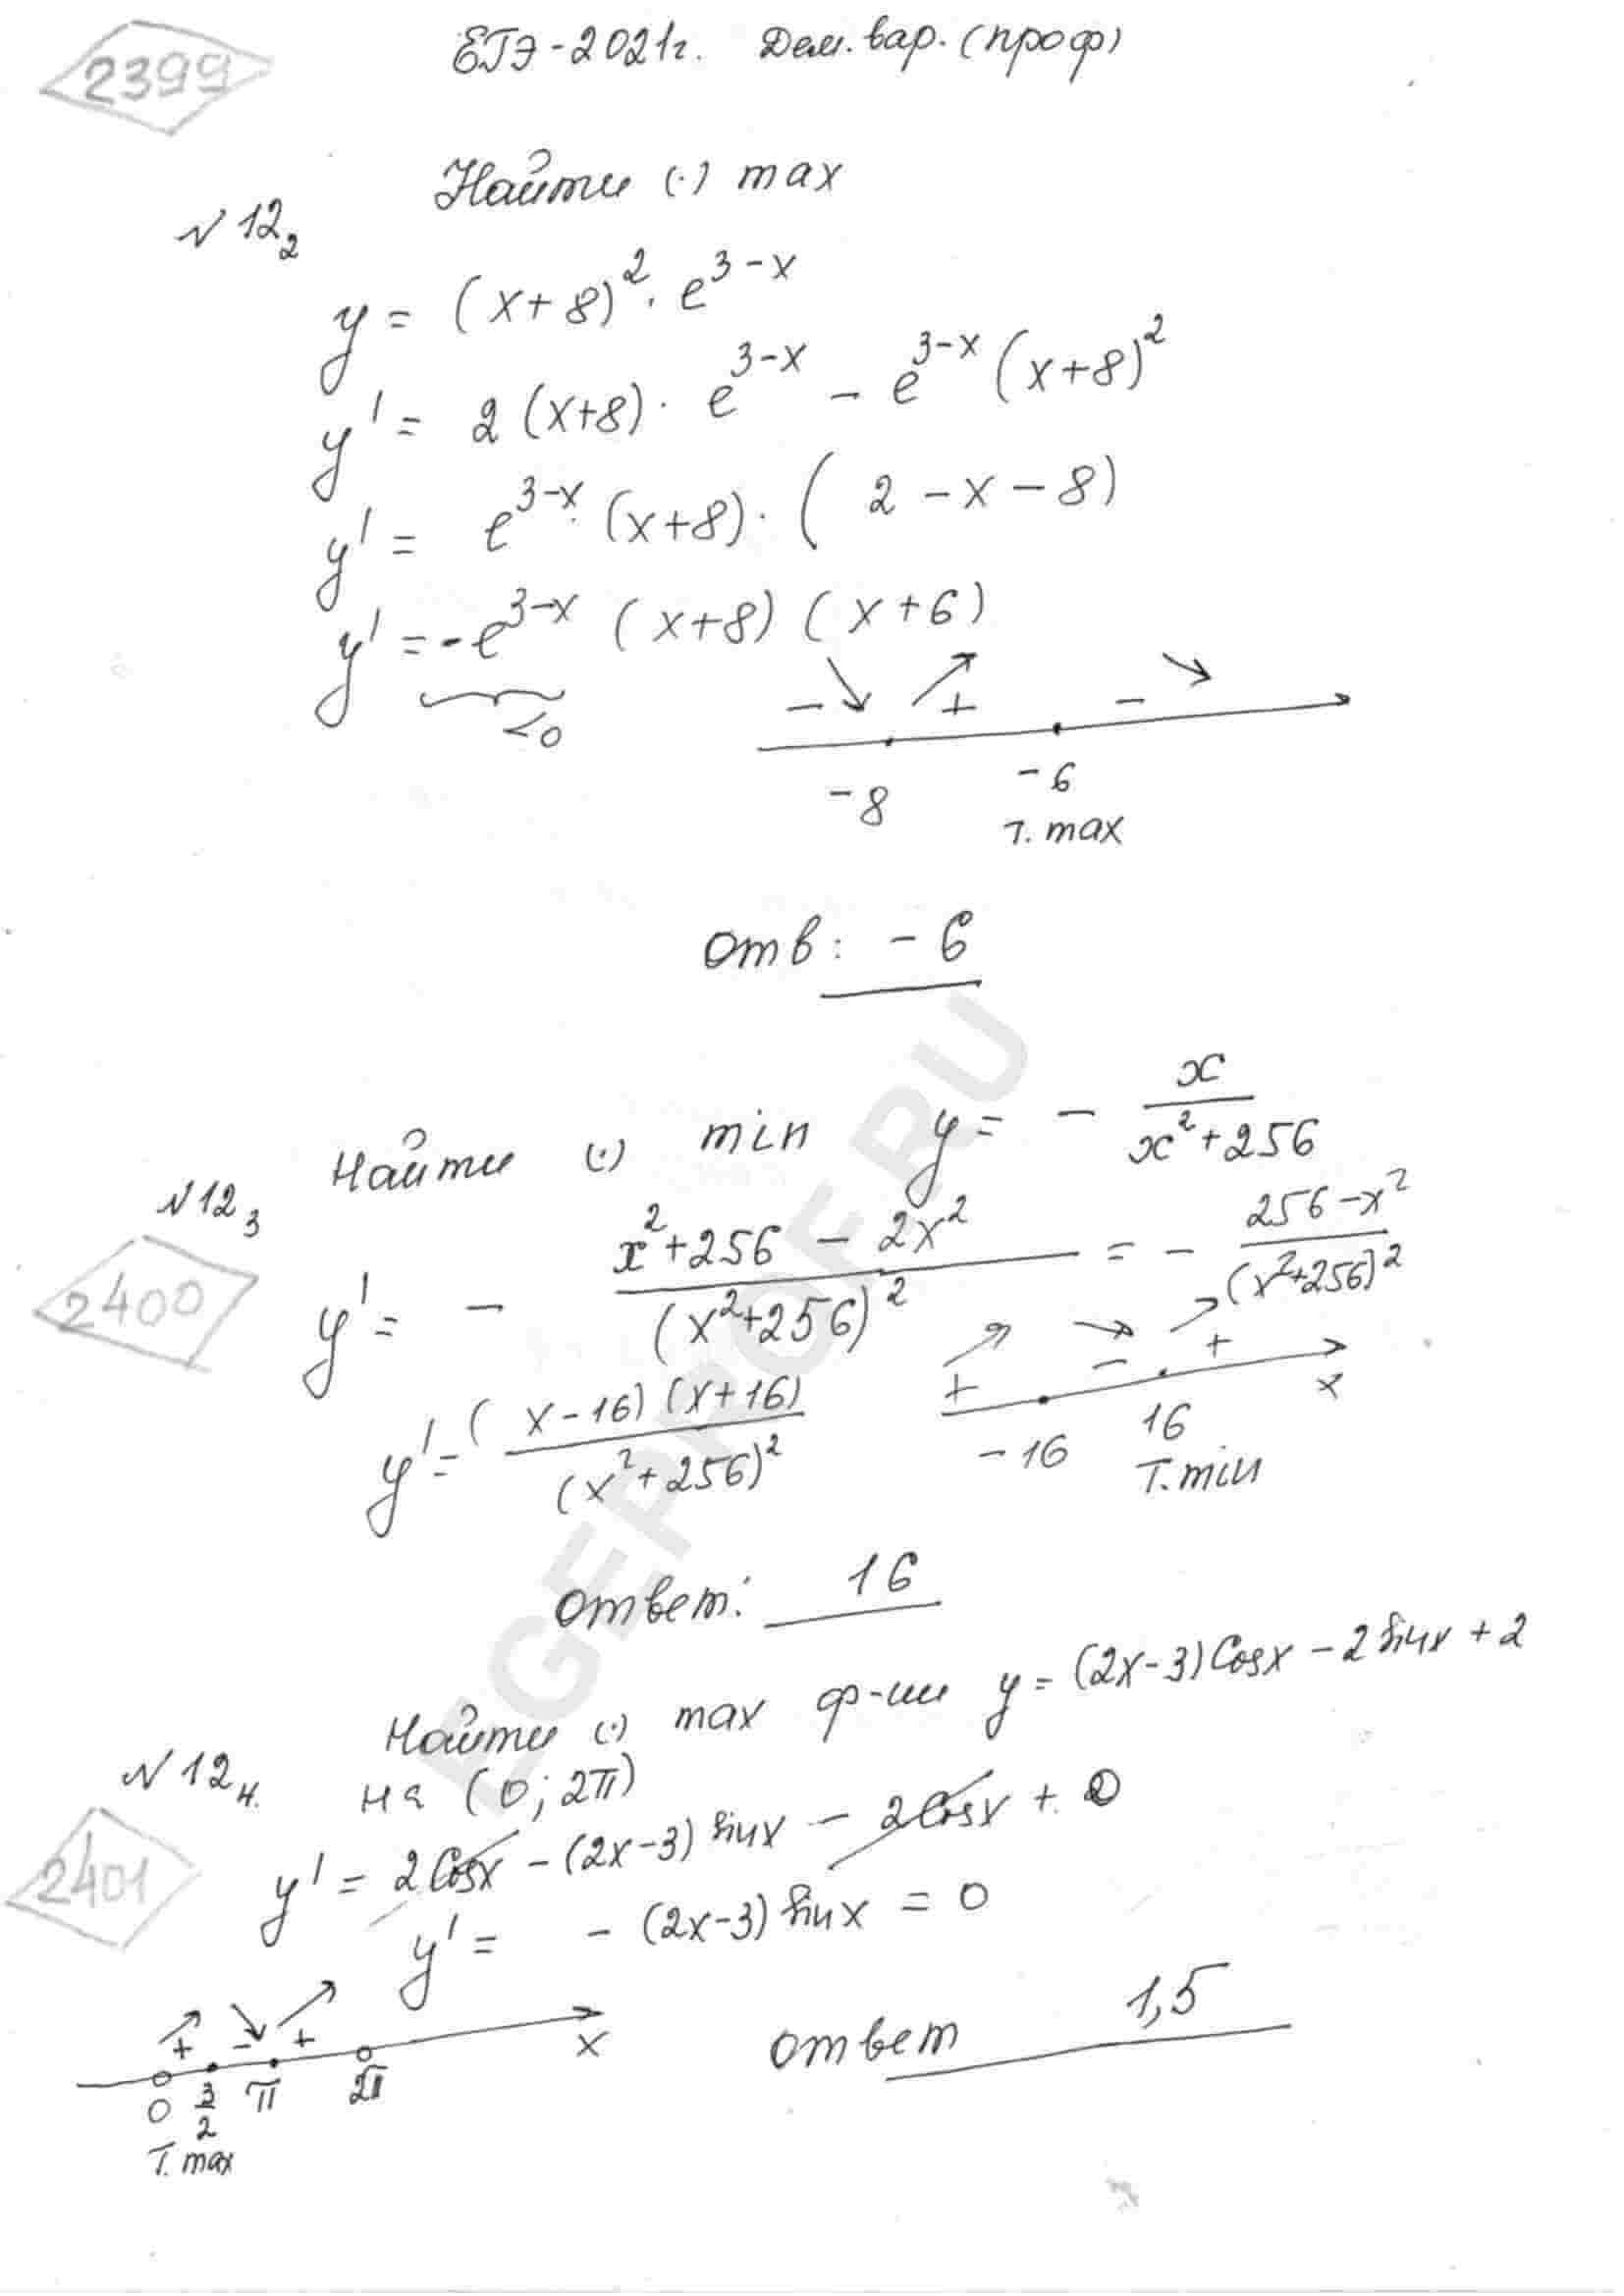 2399
ЕГЭ-2021г. Дем. вар. (проф)
№12₂ Найти (·) max
y = (x+8)²· e^(3-x)
y' = 2(x+8)· e^(3-x) - e^(3-x) (x+8)²
y' = e^(3-x)· (x+8)· (2-x-8)
y' = -e^(3-x) (x+8) (x+6)
<0
- + -
-8 -6
т. max
Отв: -6
№12₃ Найти (·) min y = - x/(x²+256)
2400
y' = - (x²+256 - 2x²)/(x²+256)² = - (256-x²)/(x²+256)²
y' = ((x-16)(x+16)/(x²+256)²
+ - +
-16 16 x
Т. min
Ответ: 16
№12₄. Найти (·) max ф-ии y = (2x-3)Cosx - 2sinx + 2
на (0; 2π)
2401
y' = 2Cosx - (2x-3) sinx - 2Cosx + 0
y' = - (2x-3) sinx = 0
+ - +
0 3/2 π 2π x
Т. max
Ответ 1,5
EGEPROF.RU